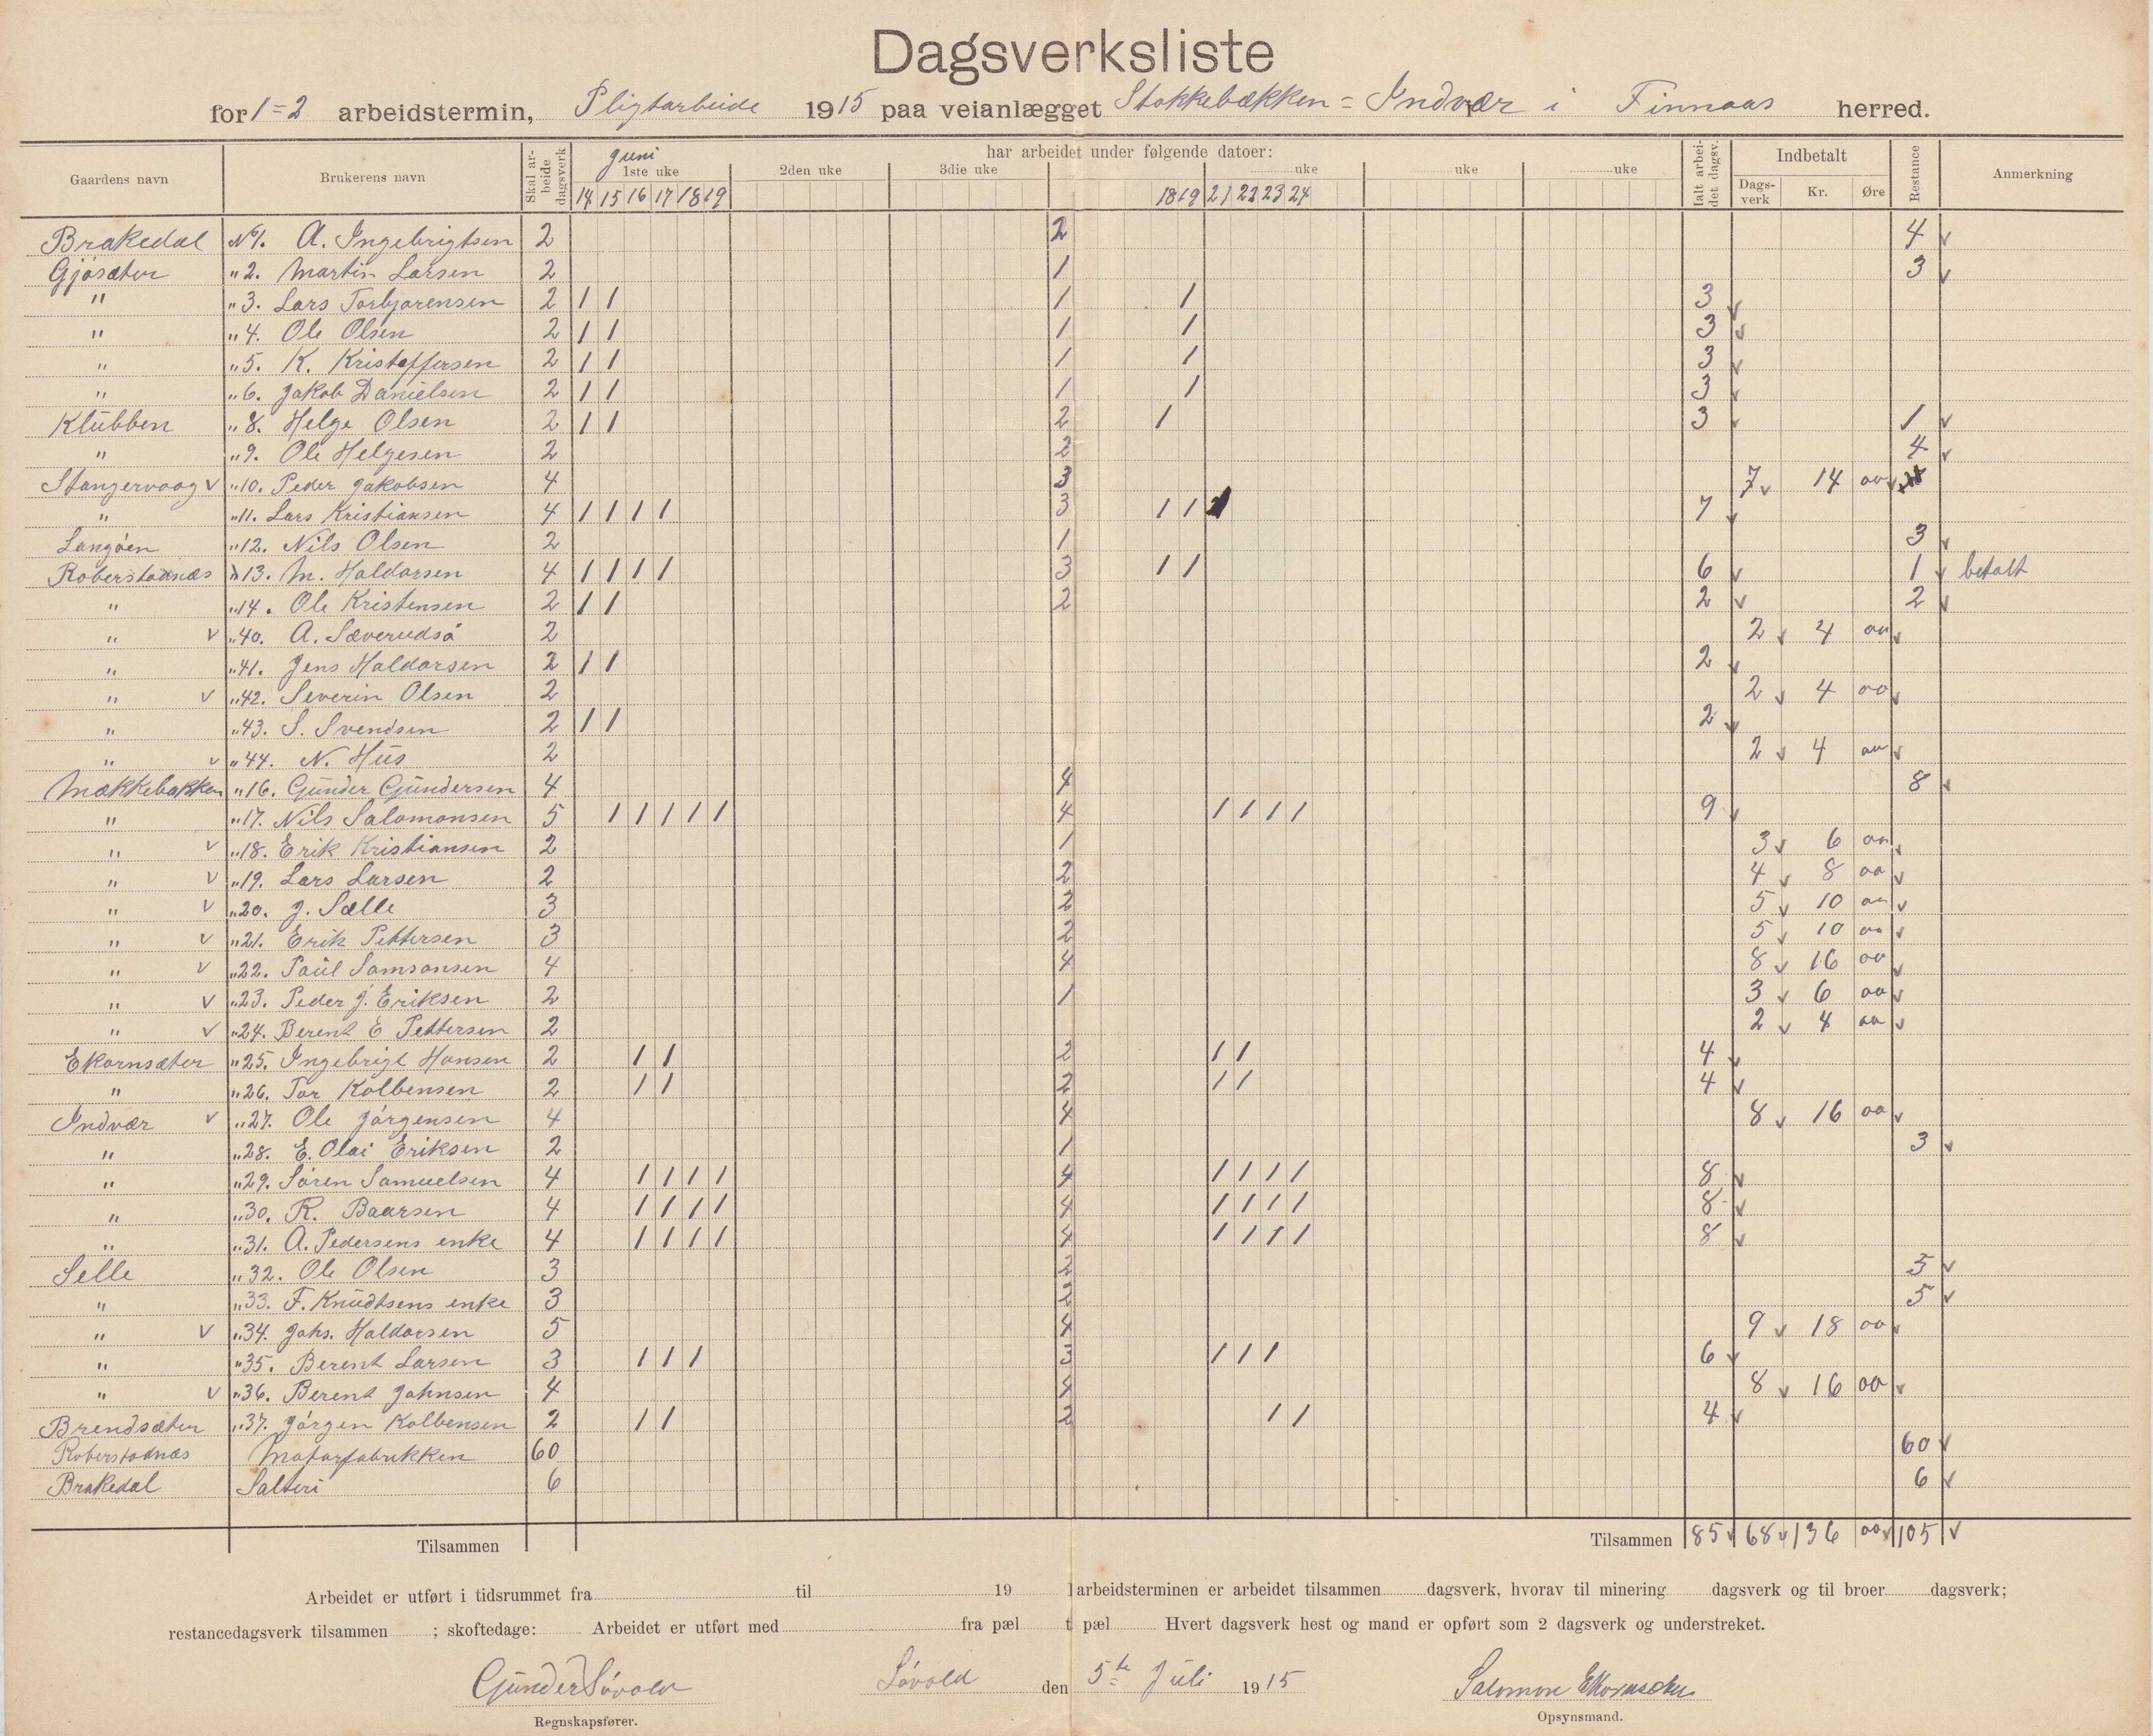 Dagsverksliste
for 1=2 arbeidstermin, Pligtarbeide 1915 paa veianlægget Stokkebækken = Indvær i Finnaas herred.
Gaardens navn Brukerens navn Skal arbeide dagsverk har arbeidet under følgende datoer: Ialt arbeidet dagsv. Indbetalt Restance Anmerkning
Juni
1ste uke 2den uke 3die uke uke uke uke Dagsverk Kr. Øre
14 15 16 17 18 19 18 19 21 22 23 24
Brakedal No 1. A. Ingebrigtsen 2 2 4 v
Gjøsæter " 2. Martin Larsen 2 1 3 v
" " 3. Lars Torbjørensen 2 1 1 1 1 3 v
" " 4. Ole Olsen 2 1 1 1 1 3 v
" " 5. K. Kristoffersen 2 1 1 1 1 3 v
" " 6. Jakob Danielsen 2 1 1 1 1 3 v
Klubben " 8. Helge Olsen 2 1 1 2 1 3 v 1 v
" " 9. Ole Helgesen 2 2 4 v
Stangervaag v " 10. Peder Jakobsen 4 3 7 v 14 00 v
" " 11. Lars Kristiansen 4 1 1 1 1 3 1 1 7 v
Langøen " 12. Nils Olsen 2 1 3 v
Roberstadnæs " 13. M. Haldorsen 4 1 1 1 1 3 1 1 6 v 1 v betalt
" " 14. Ole Kristensen 2 1 1 2 2 v 2 v
" v " 40. A. Sæverudsø 2 2 v 4 00 v
" " 41. Jens Haldorsen 2 1 1 2 v
" v " 42. Severin Olsen 2 2 v 4 00 v
" " 43. S. Svendsen 2 1 1 2 v
" v " 44. N. Hus 2 2 v 4 00 v
Mækkebakken " 16. Gunder Gundersen 4 4 8 v
" " 17. Nils Salomonsen 5 1 1 1 1 1 4 1 1 1 1 9 v
" v " 18. Erik Kristiansen 2 1 3 v 6 00 v
" v " 19. Lars Larsen 2 2 4 v 8 00 v
" v " 20. J. Sælle 3 2 5 v 10 00 v
" v " 21. Erik Pettersen 3 2 5 v 10 00 v
" v " 22. Paul Samsonsen 4 4 8 v 16 00 v
" v " 23. Peder J. Eriksen 2 1 3 v 6 00 v
" v " 24. Berent E Pettersen 2 2 v 4 00 v
Ekornsæter " 25. Ingebrigt Hansen 2 1 1 2 1 1 4 v
" " 26. Tor Kolbensen 2 1 1 2 1 1 4 v
Indvær v " 27. Ole Jørgensen 4 4 8 v 16 00 v
" " 28. E. Olai Eriksen 2 1 3 v
" " 29. Søren Samuelsen 4 1 1 1 1 4 1 1 1 1 8 v
" " 30. R. Baarsen 4 1 1 1 1 4 1 1 1 1 8 v
" " 31. A. Pedersens enke 4 1 1 1 1 4 1 1 1 1 8 v
Selle " 32. Ole Olsen 3 2 5 v
" " 33. F. Knudtsens enke 3 2 5 v
" v " 34. Johs. Haldorsen 5 4 9 v 18 00 v
" " 35. Berent Larsen 3 1 1 1 3 1 1 1 6 v
" v " 36. Berent Johnsen 4 4 8 v 16 00 v
Brendsæter " 37. Jørgen Kolbensen 2 1 1 2 1 1 4 v
Roberstadnæs Motorfabrikken 60 60 v
Brakedal Salteri 6 6 v
Tilsammen Tilsammen 85 v 68 v 136 00 v 105 v
Arbeidet er utført i tidsrummet fra til 19 1 arbeidsterminen er arbeidet tilsammen dagsverk, hvorav til minering dagsverk og til broer dagsverk;
restancedagsverk tilsammen ; skoftedage: Arbeidet er utført med fra pæl t pæl Hvert dagsverk hest og mand er opført som 2 dagsverk og understreket.
Gunder Søvold Søvold den 5te Juli 1915 Salomon Ekornsæter
Regnskapsfører. Opsynsmand.